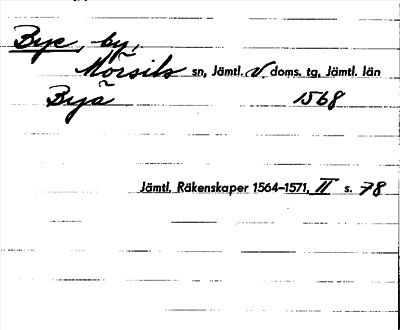 Bye, by,
Mörsils sn, Jämtl. V doms. tg, Jämtl. län
Byä 1568
Jämtl. Räkenskaper 1564–1571, II s. 78